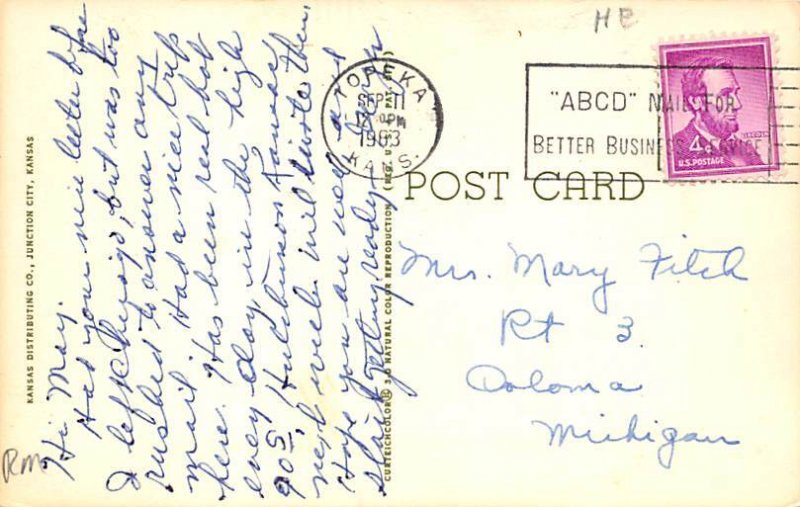 KANSAS DISTRIBUTING CO., JUNCTION CITY, KANSAS
Hi Mary.
Had your nice letter before
I left Chicago, but was too
rushed to answer any
mail. Had a nice trip
here. Has been real hot
every day, in the high
90's, Hutchinson Kansas
next week will write then.
Hope you are well and
start getting ready
CURTEICHCOLOR® 3-D NATURAL COLOR REPRODUCTION (REG. U.S.A. PAT. OFF.)
HE
RM
TOPEKA
SEP 11
PM
1963
KANS.
"ABCD" MAIL FOR
BETTER BUSINESS SERVICE
LINCOLN
4¢
U.S. POSTAGE
POST CARD
Mrs. Mary Fitch
Rt 3.
Coloma
Michigan